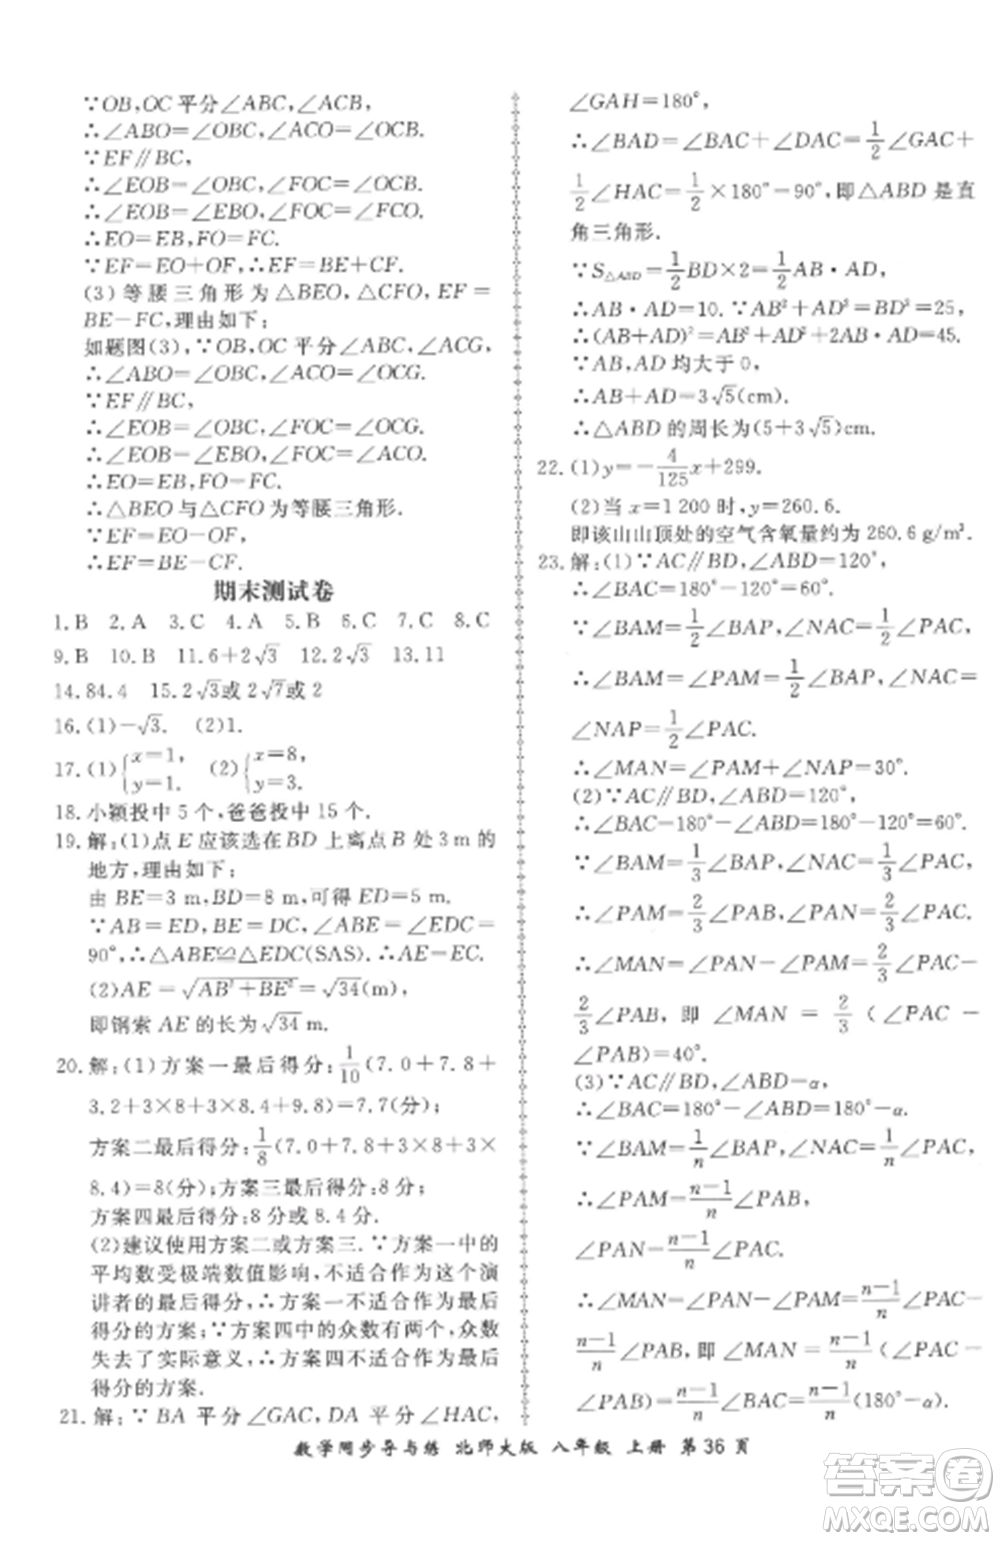 ∵OB,OC平分∠ABC,∠ACB,
∴∠ABO=∠OBC,∠ACO=∠OCB.
∵EF∥BC,
∴∠EOB=∠OBC,∠FOC=∠OCB.
∴∠EOB=∠EBO,∠FOC=∠FCO.
∴EO=EB,FO=FC.
∵EF=EO+OF,∴EF=BE+CF.
(3)等腰三角形为△BEO,△CFO,EF=
BE-FC,理由如下:
如题图(3),∵OB,OC平分∠ABC,∠ACG,
∴∠ABO=∠OBC,∠ACO=∠OCG.
∵EF∥BC,
∴∠EOB=∠OBC,∠FOC=∠OCG.
∴∠EOB=∠EBO,∠FOC=∠FCO.
∴EO=EB,FO=FC.
∴△BEO与△CFO为等腰三角形.
∵EF=EO-OF,
∴EF=BE-FC.
期末测试卷
1.B 2.A 3.C 4.A 5.B 6.C 7.C 8.C
9.B 10.B 11.6+2√3 12.2√3 13.11
14.84.4 15.2√3或2√7或2
16.(1)-√3. (2)1.
17.(1){x=1, y=1. (2){x=8, y=3.
18.小颖投中5个,爸爸投中15个.
19.解:(1)点E应该选在BD上离点B处3 m的
地方,理由如下:
由BE=3 m,BD=8 m,可得ED=5 m.
∵AB=ED,BE=DC,∠ABE=∠EDC=
90°,∴△ABE≌△EDC(SAS).∴AE=EC.
(2)AE=√(AB²+BE²)=√34(m),
即钢索AE的长为√34 m.
20.解:(1)方案一最后得分:1/10(7.0+7.8+
3.2+3×8+3×8.4+9.8)=7.7(分),
方案二最后得分:1/8(7.0+7.8+3×8+3×
8.4)=8(分);方案三最后得分:8分;
方案四最后得分:8分或8.4分.
(2)建议使用方案二或方案三.∵方案一中的
平均数受极端数值影响,不适合作为这个演
讲者的最后得分,∴方案一不适合作为最终
得分的方案;∵方案四中的众数有两个,众数
失去了实际意义,∴方案四不适合作为最终
得分的方案.
21.解:∵BA平分∠GAC,DA平分∠HAC,
∠GAH=180°,
∴∠BAD=∠BAC+∠DAC=1/2∠GAC+
1/2∠HAC=1/2×180°=90°,即△ABD是直
角三角形.
∵S△ABD=1/2BD×2=1/2AB·AD,
∴AB·AD=10.∵AB²+AD²=BD²=25,
∴(AB+AD)²=AB²+AD²+2AB·AD=45.
∵AB,AD均大于0,
∴AB+AD=3√5(cm).
∴△ABD的周长为(5+3√5)cm.
22.(1)y=-4/125x+299.
(2)当x=1 200时,y=260.6.
即该山山顶处的空气含氧量约为260.6 g/m³.
23.解:(1)∵AC∥BD,∠ABD=120°,
∴∠BAC=180°-120°=60°.
∵∠BAM=1/2∠BAP,∠NAC=1/2∠PAC,
∴∠BAM=∠PAM=1/2∠BAP,∠NAC=
∠NAP=1/2∠PAC.
∴∠MAN=∠PAM+∠NAP=30°.
(2)∵AC∥BD,∠ABD=120°,
∴∠BAC=180°-∠ABD=180°-120°=60°.
∵∠BAM=1/3∠BAP,∠NAC=1/3∠PAC,
∴∠PAM=2/3∠BAP,∠PAN=2/3∠PAC.
∴∠MAN=∠PAN-∠PAM=2/3∠PAC-
2/3∠PAB,即∠MAN=2/3(∠PAC-
∠PAB)=40°.
(3)∵AC∥BD,∠ABD=α,
∴∠BAC=180°-∠ABD=180°-α.
∵∠BAM=1/n∠BAP,∠NAC=1/n∠PAC,
∴∠PAM=(n-1)/n∠PAB,
∠PAN=(n-1)/n∠PAC.
∴∠MAN=∠PAN-∠PAM=(n-1)/n∠PAC-
(n-1)/n∠PAB,即∠MAN=(n-1)/n(∠PAC-
∠PAB)=(n-1)/n∠BAC=(n-1)/n(180°-α).
数学同步导与练 北师大版 八年级 上册 第36页
答案卷
MXQE.COM